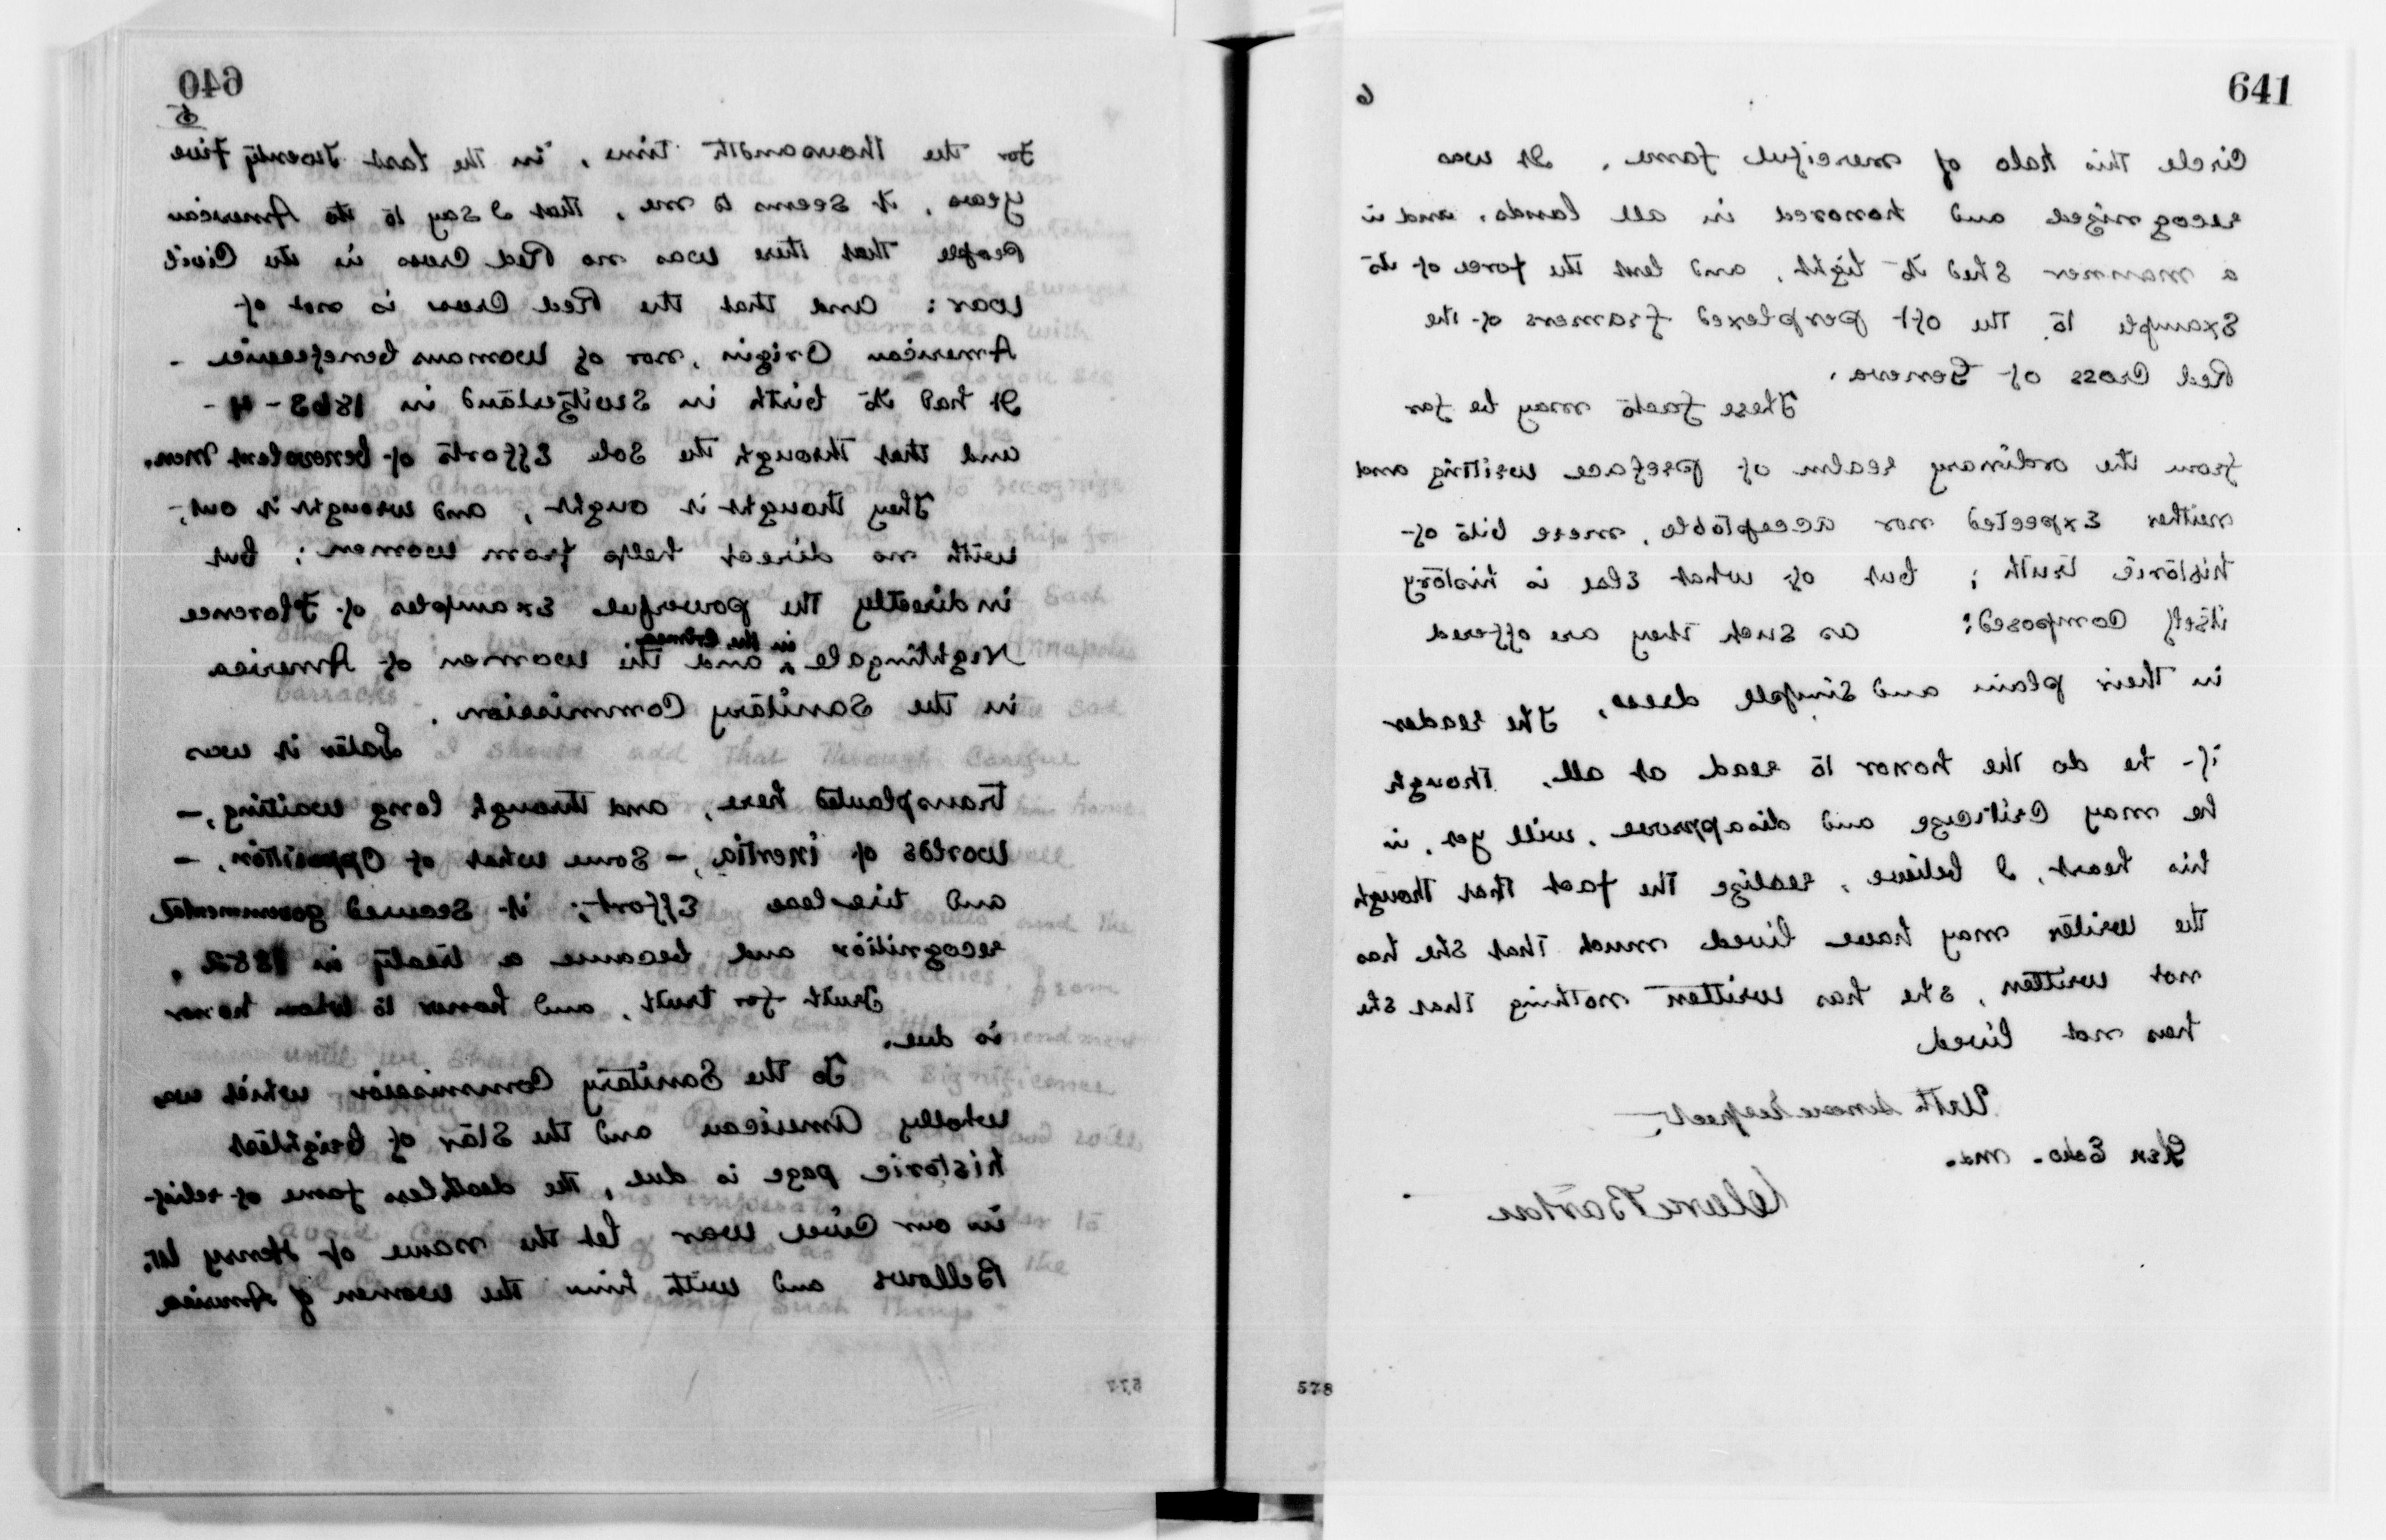 640
5
For the thousandth time, in the last twenty five
years, it seems to me, that I say to the American
people that there was no Red Cross in the Civil
war: and that the Red Cross is not of
American Origin, nor of womans beneficence -
It had its birth in Switzerland in 1863-4-
and that through the sole Efforts of benevolent men.
They thought it ought, and wrought it out,-
with no direct help from women; but
indirectly the powerful Examples of Florence
Nightingale in the Crimea. and the women of America
in the Sanitary Commission.
Later it was
transplanted here, and through long waiting, -
worlds of inertia, - some what of opposition, -
and tireless Effort; it secured governmental
recognition and became a treaty in 1882.
Truth for truth, and honor to whom honor
is due.
To the Sanitary Commission which was
wholly American and the Star of brightest
historic page is due, the deathless fame of relief
in our Civil war let the name of Henry W.
Bellows and with him the women of America
577
641
6
Circle this halo of merciful fame. It was
recognized and honored in all lands, and in
a manner shed its light, and lent the force of its
Example to the oft perplexed framers of the
Red Cross of Geneva.
These facts may be far
from the ordinary realm of preface writing and
neither Expected nor acceptable, mere bits of
historic truth; but of what Else is history
itself composed? as such they are offered
in their plain and simple dress. The reader
if he do the honor to read at all, though
he may criticize and disapprove, will, yet, in
his heart, I believe, realize the fact that though
the writer may have lived much that she has
not written, she has written nothing that she
has not lived
With sincere respect
Glen Echo. Md.
Clara Barton
578